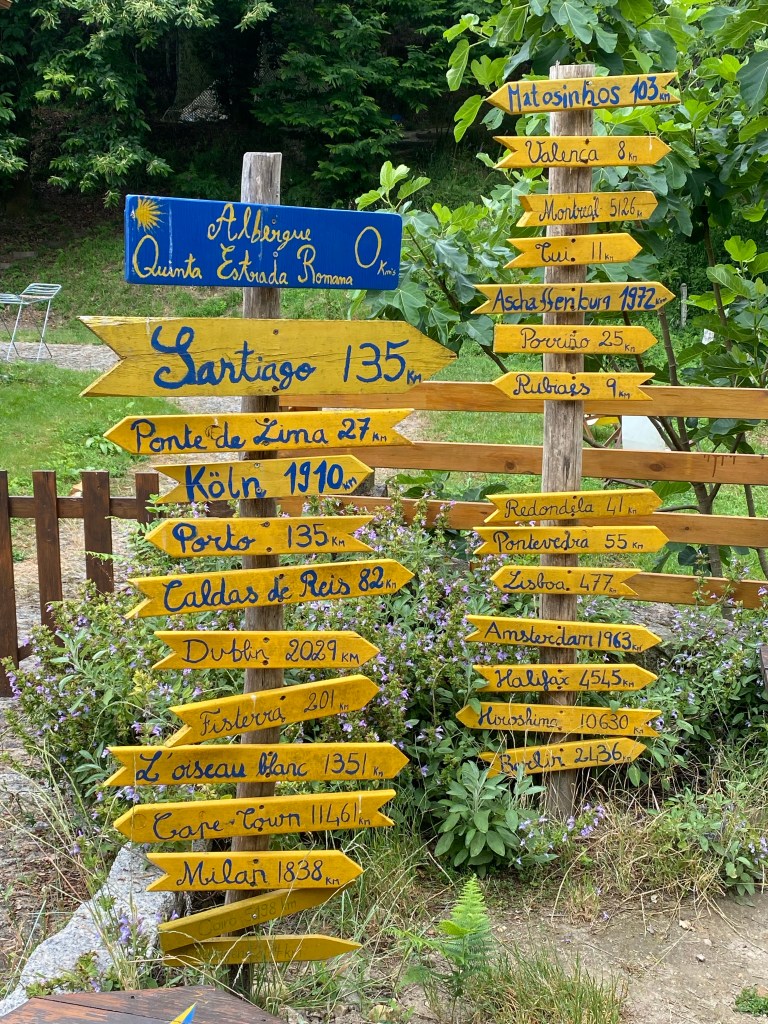 Albergue
Quinta Estrada Romana
0 Km's
Santiago 135 Km
Ponte de Lima 27 KM
Köln 1910 KM
Porto 135 KM
Caldas de Reis 82 KM
Dublin 2029 KM
Fisterra 201 KM
L'oiseau blanc 1351 KM
Cape Town 11461 KM
Milan 1838 KM
Matosinhos 103 KM
Valença 8 KM
Montreal 5126 KM
Tui 11 KM
Aschaffenburg 1972 KM
Porriño 25 KM
Rubiaes 9 KM
Redondela 41 KM
Pontevedra 55 KM
Lisboa 477 KM
Amsterdam 1963 KM
Halifax 4545 KM
Hiroshima 10630 KM
Berlin 2436 KM